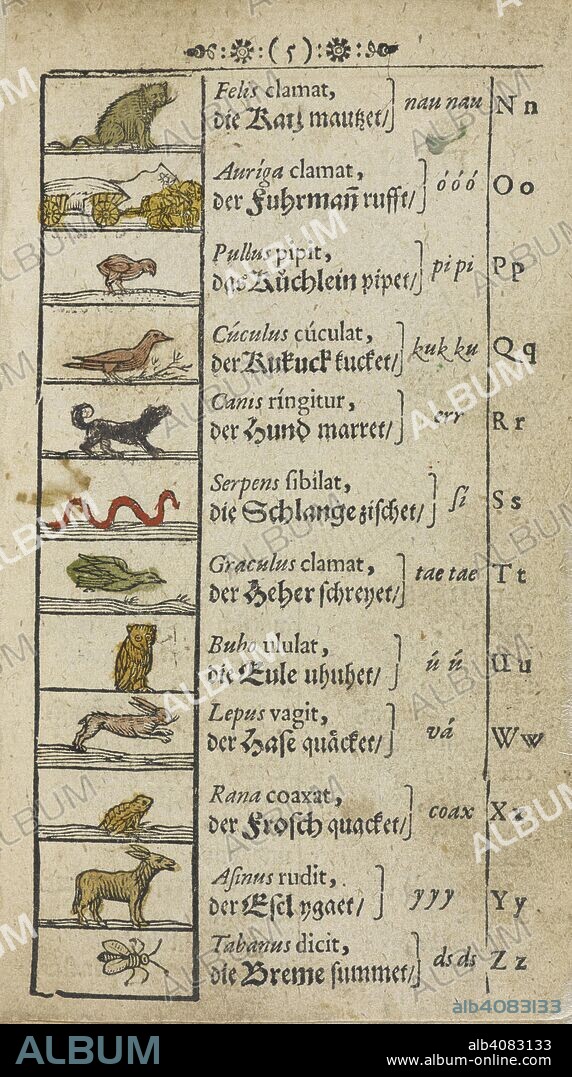 ( 5 )
Felis clamat,
die Katz mautzet/ nau nau N n
Auríga clamat,
der Fuhrmañ rufft/ ó ó ó O o
Pullus pipit,
das Kůchlein pipet/ pi pi P p
Cúculus cúculat,
der Kukuck kucket/ kuk ku Q q
Canis ríngitur,
der Hund marret/ err R r
Serpens ſibilat,
die Schlange ziſchet/ ſi S s
Graculus clamat,
der Heher ſchreyet/ tae tae T t
Bubo ululat,
die Eule uhuhet/ ú ú U u
Lepus vagit,
der Haſe quåcket/ vá W w
Rana coaxat,
der Froſch quacket/ coax X x
Aſinus rudit,
der Eſel ygaet/ y y y Y y
Tabanus dicit,
die Breme ſummet/ ds ds Z z
alb4083133
ALBUM
alb4083133
www.album-online.com